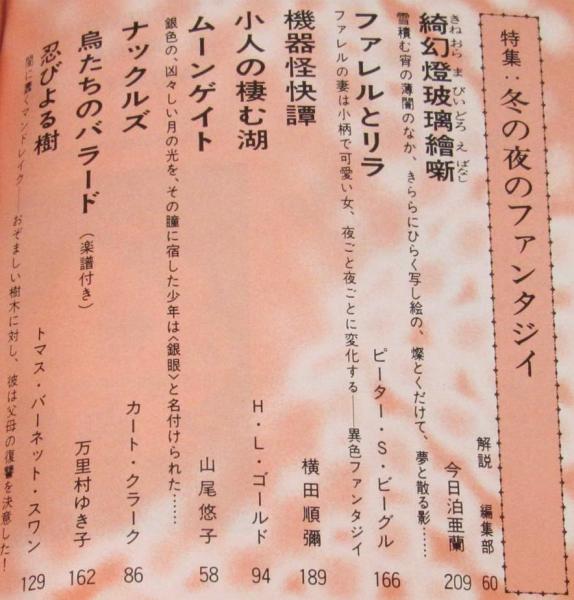 特集：冬の夜のファンタジイ
解説 編集部 60
きねおらま びいどろ え ばなし
綺幻燈玻璃繪噺 今日泊亜蘭 209
雪積む宵の薄闇のなか、きららにひらく写し絵の、燦とくだけて、夢と散る影……
ファレルとリラ ピーター・S・ビーグル 166
ファレルの妻は小柄で可愛い女、夜ごと夜ごとに変化する――異色ファンタジイ
機器怪快譚 横田順彌 189
小人の棲む湖 H・L・ゴールド 94
ムーンゲイト 山尾悠子 58
銀色の、凶々しい月の光を、その瞳に宿した少年は〈銀眼〉と名付けられた……
ナックルズ カート・クラーク 86
鳥たちのバラード（楽譜付き） 万里村ゆき子 162
忍びよる樹 トマス・バーネット・スワン 129
闇に蠢くマンドレイク――おぞましい樹木に対し、彼は父母の復讐を決意した！